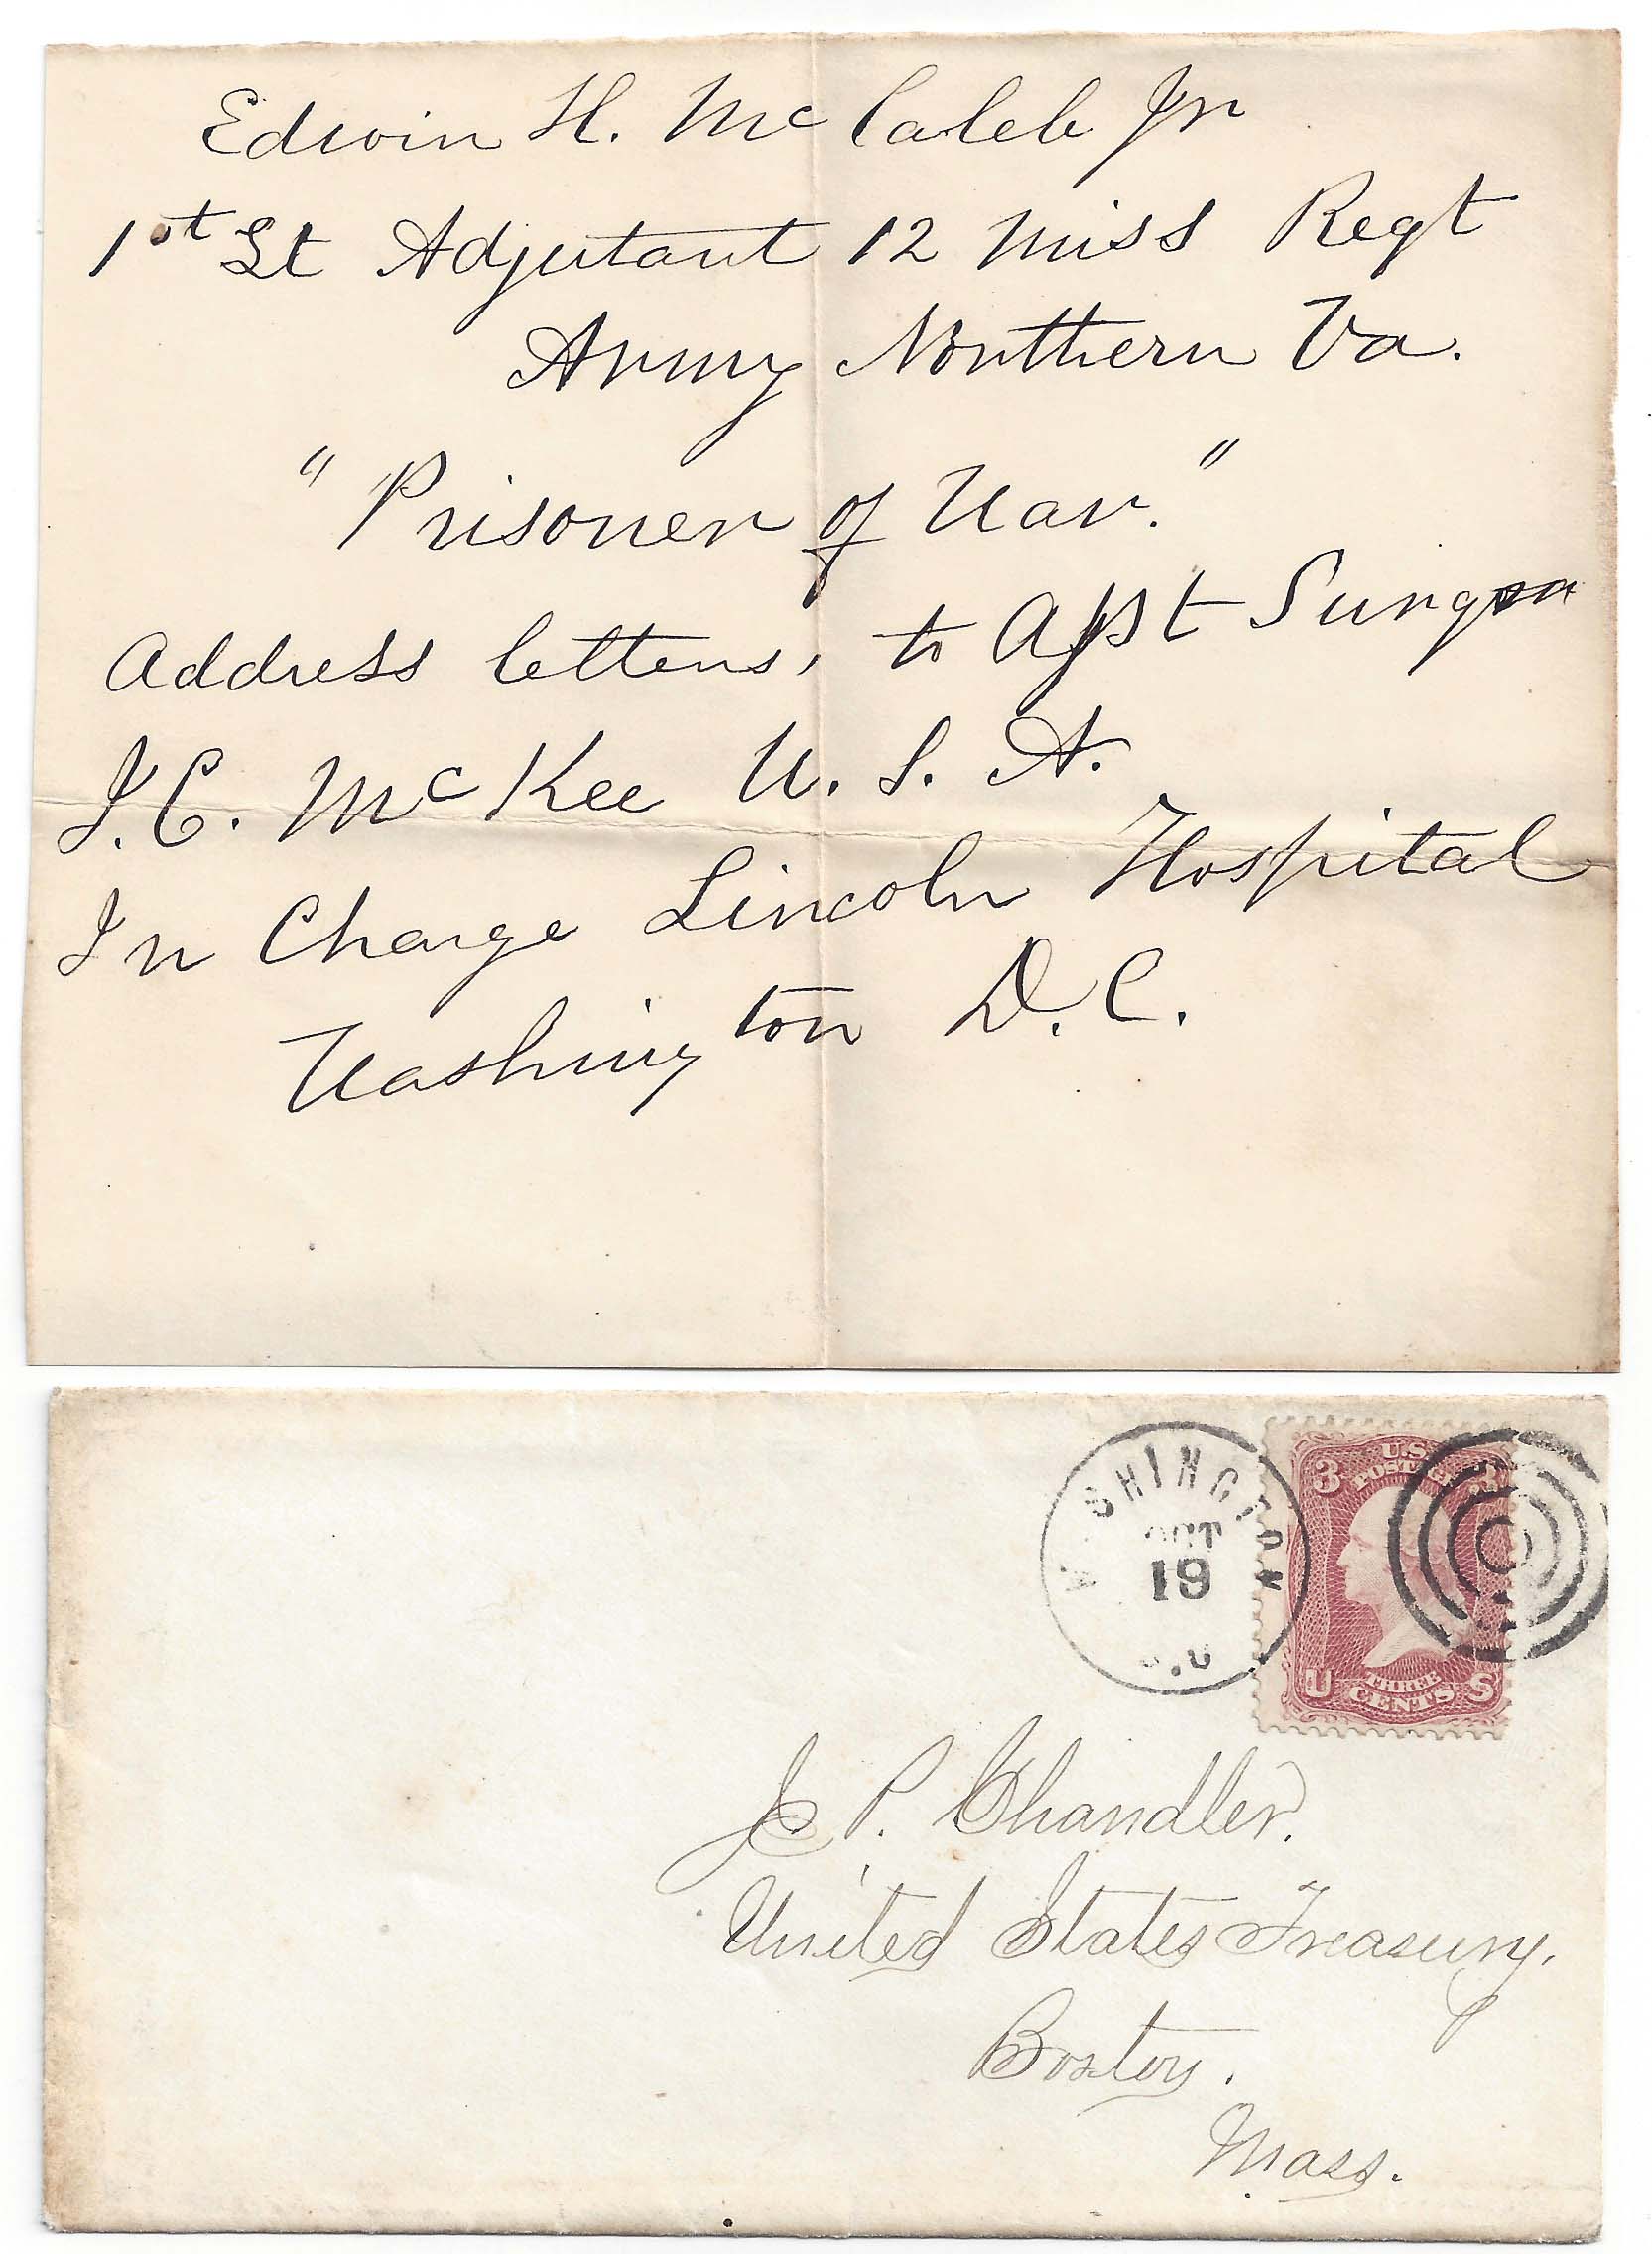 Edwin H. McCaleb Jr
1st Lt Adjutant 12 Miss Regt
Army Northern Va.
"Prisoner of War."
Address letters, to Asst Surgeon
J. C. McKee U. S. A.
In Charge Lincoln Hospital
Washington D. C.
WASHINGTON
OCT
19
D.C
U.S.
POSTAGE
3 3
U THREE S
CENTS
P. Chandler.
United States Treasury.
Boston.
Mass.